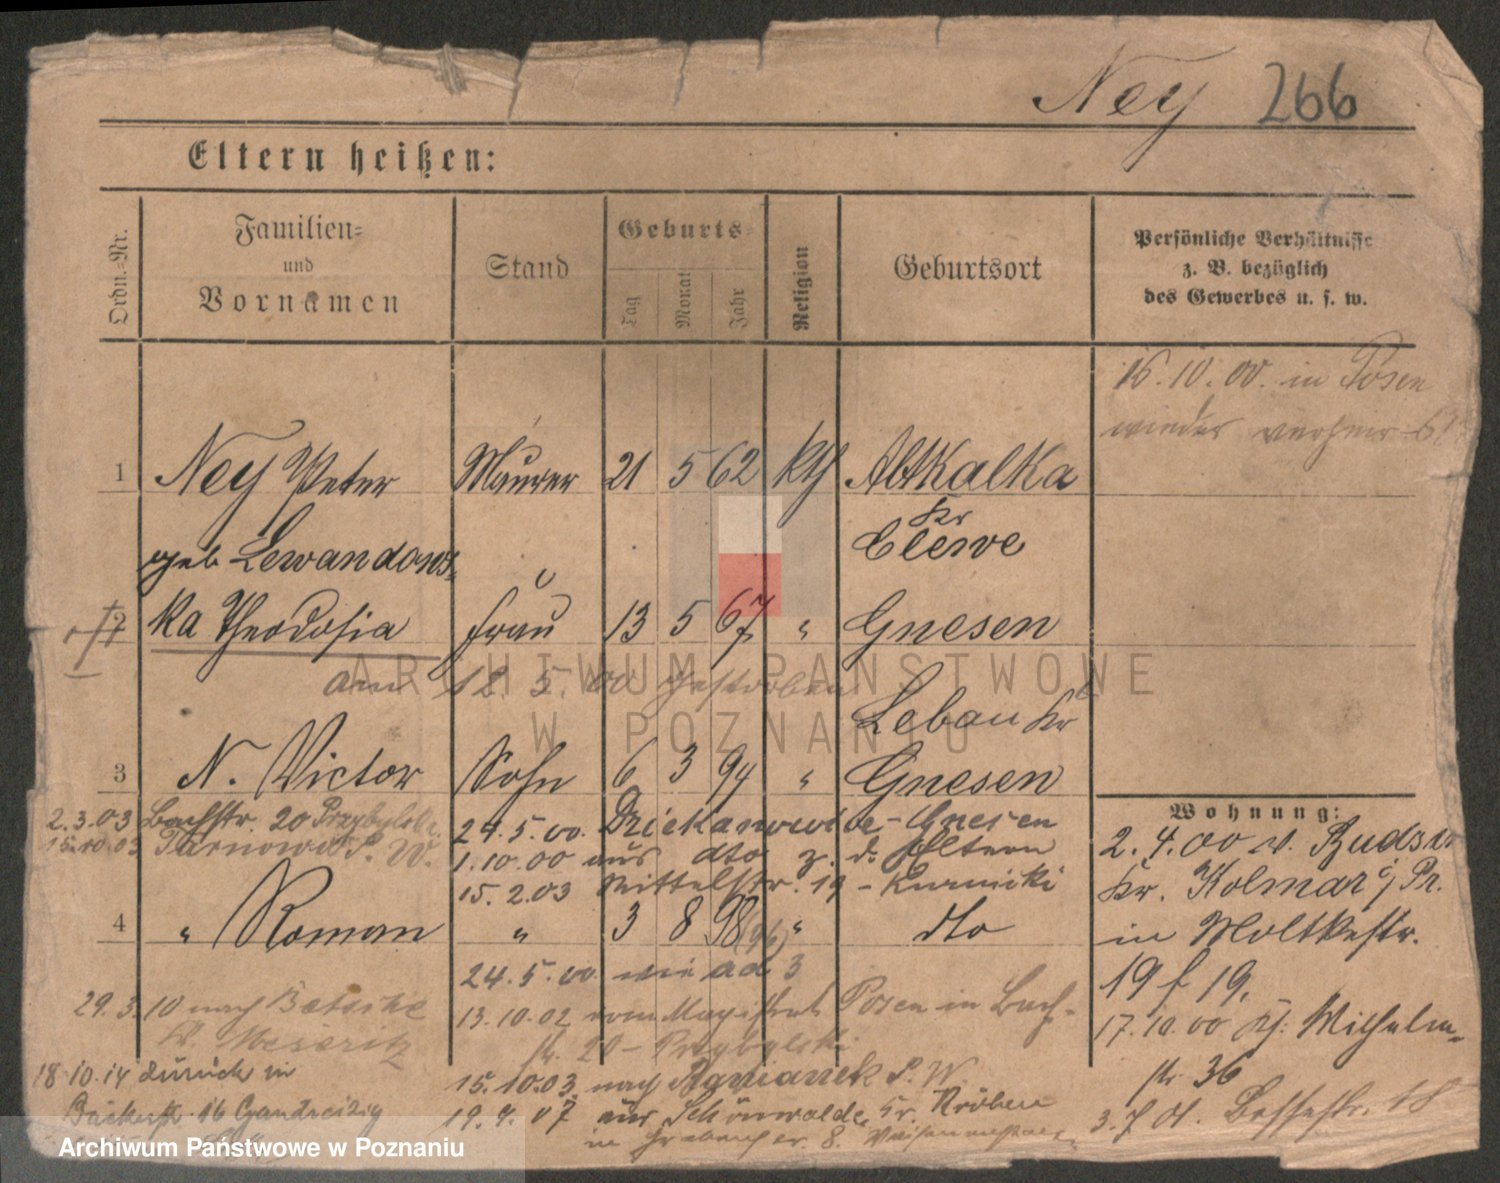 Ney 266
Eltern heißen:
Ordn.=Nr.
Familien=
und
Vornamen
Stand
Geburts=
Tag
Monat
Jahr
Religion
Geburtsort
Persönliche Verhältnisse
z. B. bezüglich
des Gewerbes u. s. w.
16.10.00. in Posen
wieder
1 Ney Peter Maurer 21 5 62 kth Altkalka
Kr
Cleswe
geb Lewandows-
2 ka Theodosia Frau 13 5 67 " Gnesen
am 12. 5. 00 gestorben
Lebau Kr
3 N. Victor Sohn 6 3 94 " Gnesen
Wohnung:
2.3.03 Bachstr. 20 Przybylski
15.10.03 Tarnowo P. W.
24.5.00. Dziekanowice - Gnesen
1.10.00 aus dto z. d. Eltern
15.2.03 Mittelstr. 19 - Kurnicki
4 " Roman " 3 8 98 (96) " dto
24.5.00. wie ad 3
2.4.00 v. Budsin
Kr. Kolmar i/Pr.
in Moltkestr.
19 f 19.
17.10.00 Kf. Wilhelm-
str 36
3.7.01. Bessestr. 18
29.3.10 nach Betsche
Kr. Meseritz
13.10.02 vom Magistrat Posen in Bach-
str. 20 - Przybylski
18.10.14 zurück in
Bäckerstr. 16
15.10.03. nach P. W
19.4.07 aus Schönwalde, Kr.
in
ARCHIWUM PAŃSTWOWE
W POZNANIU
Archiwum Państwowe w Poznaniu